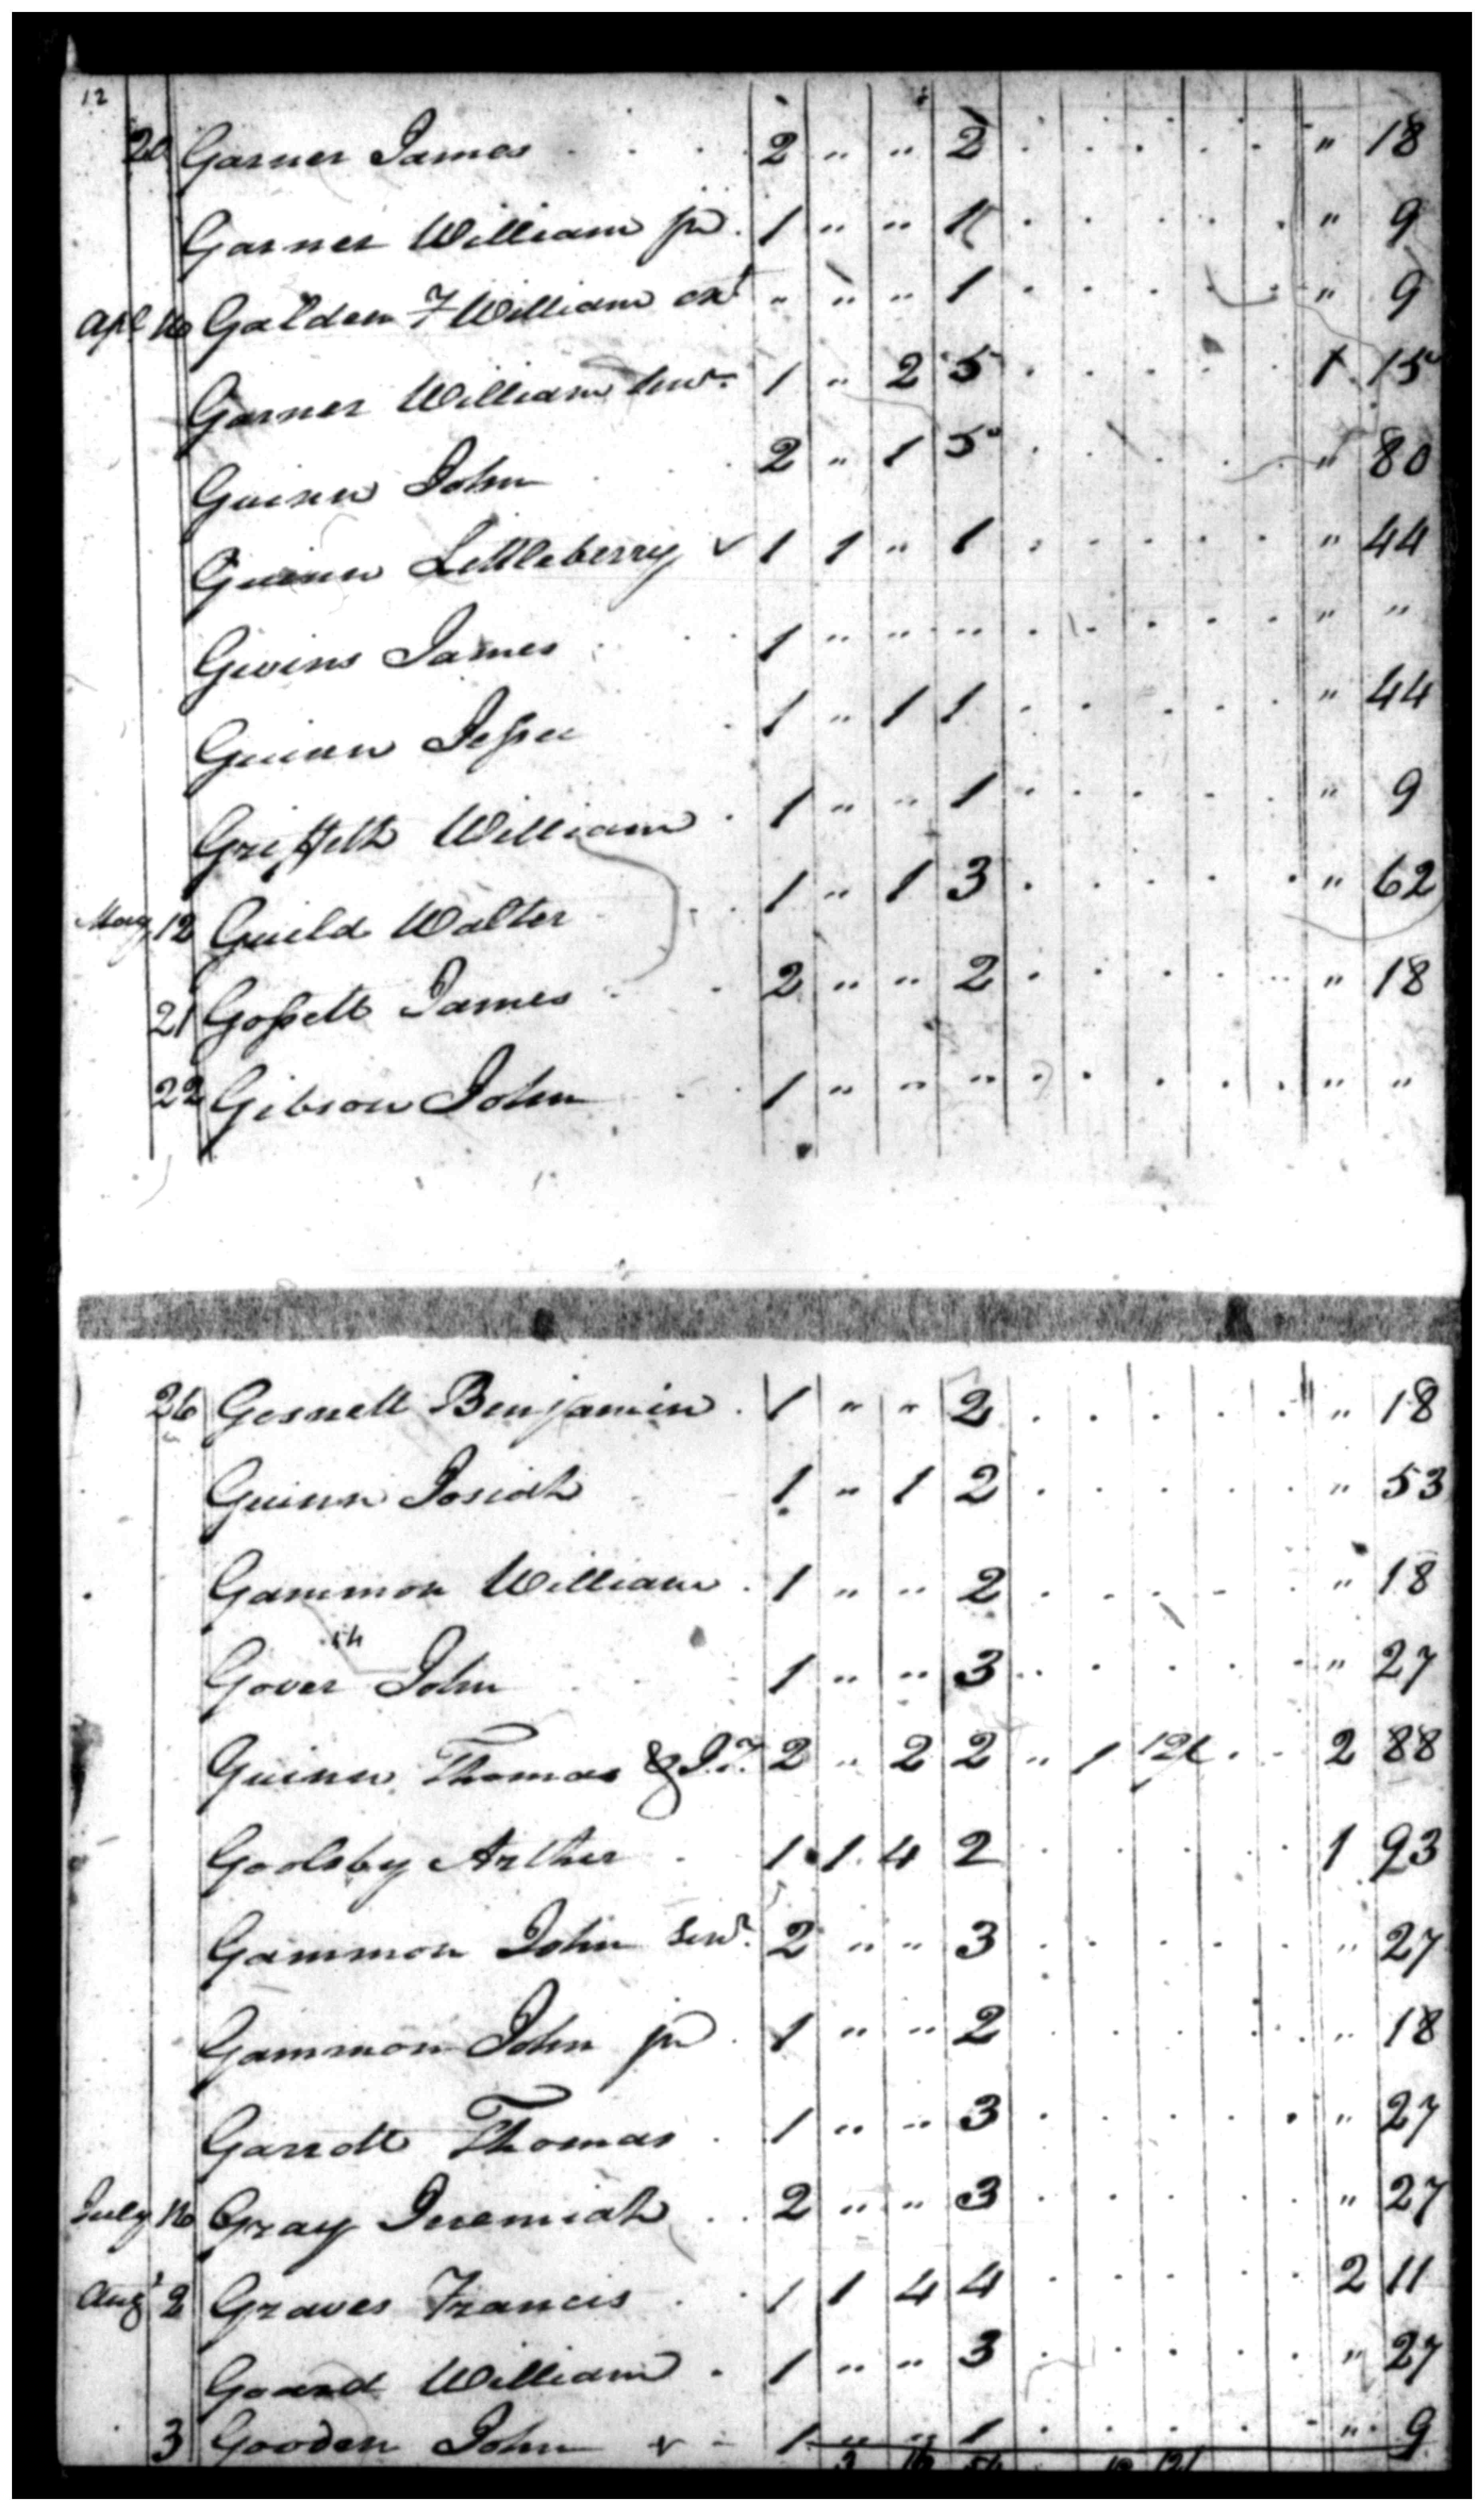 12
20 Garner James 2 " " 2 " 18
Garner William jr 1 " " 1 " 9
Apl 16 Galden F William ext " " " 1 " 9
Garner William Senr 1 " 2 5 1 15
Guinn John 2 " 1 5 " 80
Guinn Littleberry v 1 1 " 1 " 44
Givins James 1 " " " " "
Guinn Jessee 1 " 1 1 " 44
Griffith William 1 " " 1 " 9
May 12 Guild Walter 1 " 1 3 " 62
21 Gossett James 2 " " 2 " 18
22 Gibson John 1 " " " " "
26 Gosnell Benjamin 1 " " 2 " 18
Guinn Josiah 1 " 1 2 " 53
Gammon William 1 " " 2 " 18
Gover John 1 " " 3 " 27
Guinn Thomas & 2 " 2 2 " 1 2 88
Goolsby Arther 1 1 4 2 1 93
Gammon John Senr 2 " " 3 " 27
Gammon John jr 1 " " 2 " 18
Garrott Thomas 1 " " 3 " 27
July 16 Gray Jeremiah 2 " " 3 " 27
Augt 2 Graves Francis 1 1 4 4 2 11
Goard William 1 " " 3 " 27
3 Gooden John v 1 " " 1 " 9
3 16 54